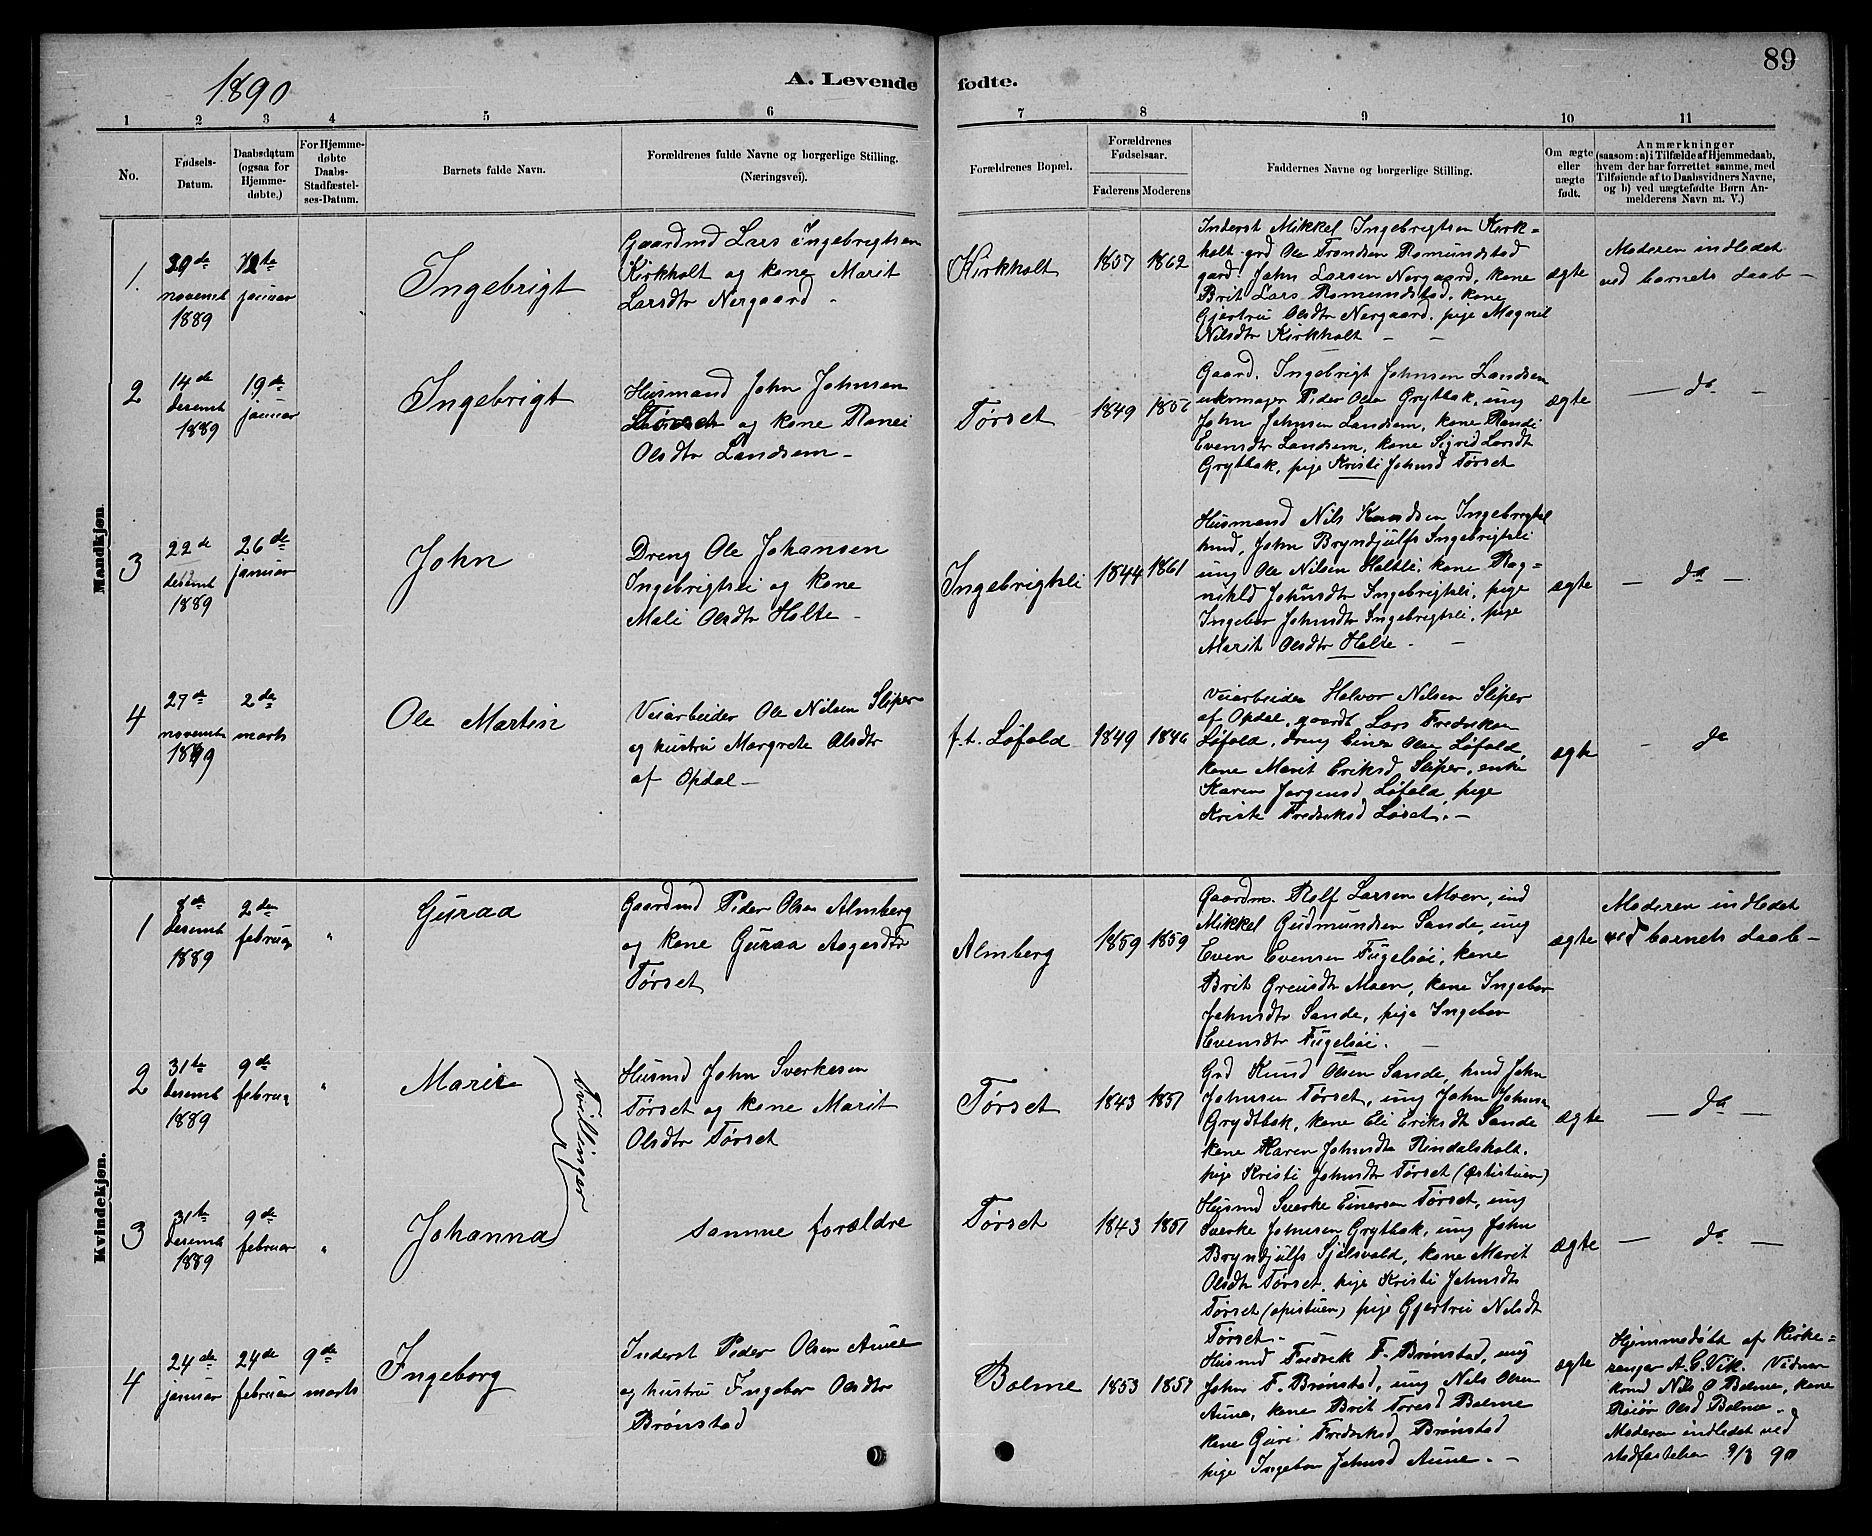 1890
A. Levende fødte.
89
1 2 3 4 5 6 7 8 9 10 11
No.
Fødsels-
Datum.
Daabsdatum
(ogsaa for
Hjemme-
døbte.)
For Hjemme-
døbte
Daabs-
Stadfæstel-
ses-Datum.
Barnets fulde Navn.
Forældrenes fulde Navne og borgerlige Stilling.
(Næringsvei).
Forældrenes Bopæl.
Forældrenes
Fødselsaar.
Faderens Moderens
Faddernes Navne og borgerlige Stilling.
Om ægte
eller
uægte
født.
Anmærkninger
(saasom: a) i Tilfælde af Hjemmedaab,
hvem der har forrettet samme, med
Tilføiende af to Daabsvidners Navne,
og b) ved uægtefødte Børn An-
melderens Navn m. V.)
Mandkjøn.
1.
29de
novembr
1889
januar
Ingebrigt
Gaardmd Lars Ingebrigtsen
Kirkholt og kone Marit
Larsdtr Nergaard -
Kirkholt
1862
Inderst Mikkel Ingebrigtsen Kirk=
holt. grd Ole Trondsen Romundstad
gard. John Larsen Nergaard, kone
Brit Lars Romundstad, kone
Gjertru Olsdtr Nergaard. pige Magnil
Nilsdtr Kirkholt - -
ægte
Moderen indledet
ved barnets daab -
2
14de
desembr
1889
19de
januar
Ingebrigt
Husmand John Johnsen
Tørset og kone Ranei
Olsdtr Landsem -
Tørset
1849
Gaard. Ingebrigt Johnsen Landsem
Peder Olsen Grytbak, ung
John Johnsen Landsem, kone Randi
Evensdtr Landsem, kone Sigrid Larsdt
Grytbak, pige Kristi Johnsd Tørset
ægte
- do -
3
22de
desembr
1889
26de
januar
John
Dreng Ole Johansen
Ingebrigtsli og kone
Mali Olsdtr Holte -
Ingebrigtsli
1844 1861
Husmand Nils Knudsen Ingebrigtsl
husd, John Bryndjulfs Ingebrigtsli
ung Ole Nilsen Holtli, kone Rag=
nikld Johansdtr Ingebrigtsli, pige
Ingebor Johnsdtr Ingebrigtsli, pige
Marit Olsdtr Holte - -
ægte
- do -
4
27de
novembr
1889
2de
marts
Ole Martin
Veiarbeider Ole Nilsen Sliper
og hustru Margrete Olsdtr
af Opdal -
f.t. Løfald
1849 1846
Veiarbeider Halvor Nilsen Sliper
af Opdal, gaardt Lars Fredriksen
Løfald, dreng Einer Olsen Løfald,
kone Marit Eriksd Sliper, enke
Karen Jørgensd Løfald, pige
Kristi Fredriksd Løset. -
ægte
- do
Kvindekjøn.
1
desembr
1889
2den
februar
"
Guraa
Gaardmd Peder Olsen Almberg
og kone Guraa Aagesdtr
Tørset
Almberg
1859 1859
Gaardm. Rolf Larsen Moen, ind
Mikkel Gudmundsen Sande, ung
Even Evensen Fugelsøi, kone
Brit Greusdtr Moen, kone Ingebor
Johnsdtr Sande, pige Ingebor
Evensdtr Fugelsøi. -
ægte
Moderen indledet
ved barnets daab -
2
31te
desembr
1889
9de
februar
"
Marit
Tvillinger
Husmd John Sverkesen
Tørset og kone Marit
Olsdtr Tørset
Tørset
1843 1851
Grd Knud Olsen Sande, husd John
Johnsen Tørset, ung John Johnsen
Grydtbak, kone Eli Eriksdt Sande
kone Karen Johnsdtr Rindalsholt.
pige Kristi Johnsdtr Tørset (østistuen)
ægte
- do -
3
31te
desembr
1889
9de
februar
"
Johanna
samme forældre
Tørset
1843 1851
Husmd Sverke Einersen Tørset, ung
Sverke Johnsen Grytbak, ung John
Bryndjulfs Sjølsvold, kone Marit
Olsdtr Tørset, pige Kristi Johnsdtr
Tørset (opistuen) pige Gjertru Nilsdt
Tørset -
ægte
- do -
4
24de
januar
24de
februar
9de
marts
Ingeborg
Inderst Peder Olsen Aune
og hustru Ingebor Olsdtr
Brønstad
Bolme
1853 1851
Husmd Fredrik F. Brønstad, ung
John F. Brønstad, ung Nils Olsen
Aune, kone Brit Toresd Bolme
kone Guri Fredriksd Brønstad
pige Ingebor Johnsd Aune. -
ægte
Hjemmedøbt af Kirke=
sanger A.G. Vik. Vidner
Nils O Bolme, kone
Olsd Bolme.
Moderen indledet ved
stadfæstelsen 9/3 90